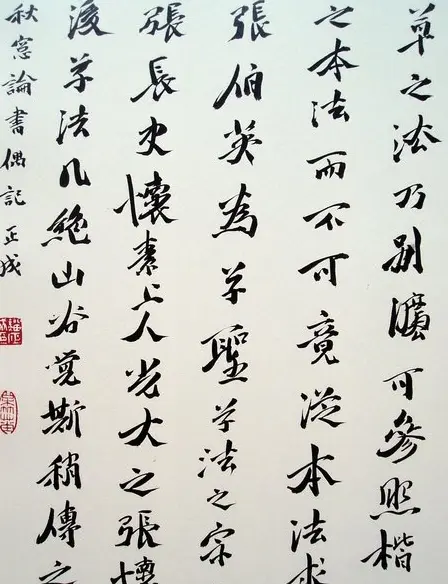 草之法乃別灋可參照楷
之本法而不可竟從本法求
張伯英為草聖草法之宗
張長史懷素上人光大之張懷
後草法几絕山谷覺斯稍傳之
秋窗論書偶記 正成